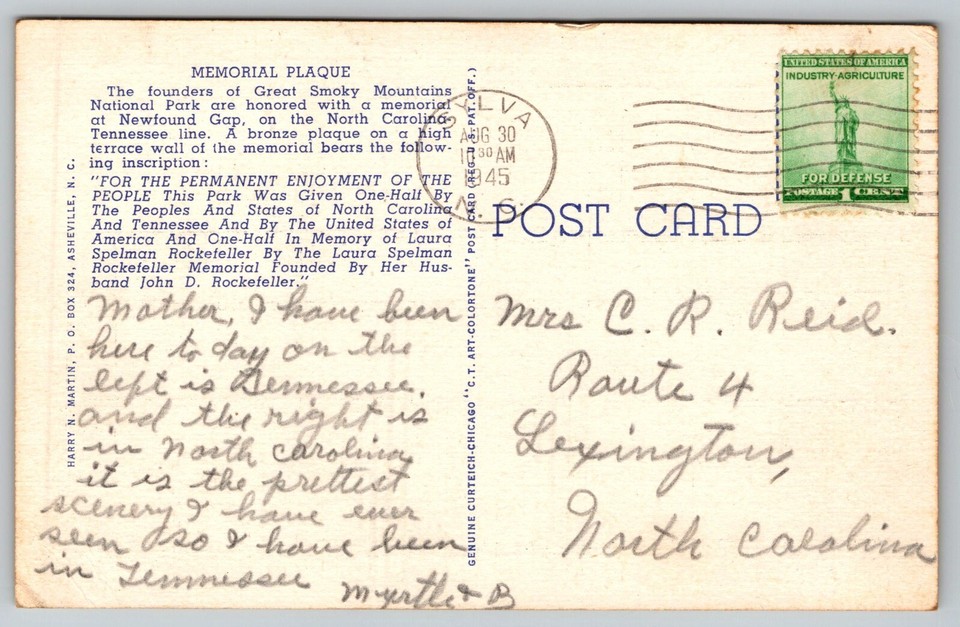 MEMORIAL PLAQUE
The founders of Great Smoky Mountains
National Park are honored with a memorial
at Newfound Gap, on the North Carolina-
Tennessee line. A bronze plaque on a high
terrace wall of the memorial bears the follow-
ing inscription:
"FOR THE PERMANENT ENJOYMENT OF THE
PEOPLE This Park Was Given One-Half By
The Peoples And States of North Carolina
And Tennessee And By The United States of
America And One-Half In Memory of Laura
Spelman Rockefeller By The Laura Spelman
Rockefeller Memorial Founded By Her Hus-
band John D. Rockefeller."
Mother, I have been
here to day on the
left is Tennessee.
and the right is
in North Carolina
it is the prettest
scenery I have ever
seen so I have been
in Tennessee
Myrtle & B
HARRY N. MARTIN, P. O. BOX 324, ASHEVILLE, N. C.
GENUINE CURTEICH-CHICAGO "C.T. ART-COLORTONE" POST CARD (REG. U.S. PAT. OFF.)
AUG 30
10 30 AM
1945
N. C.
UNITED STATES OF AMERICA
INDUSTRY-AGRICULTURE
FOR DEFENSE
POSTAGE 1 CENT
POST CARD
Mrs C. R. Reid.
Route 4
Lexington,
North Carolina